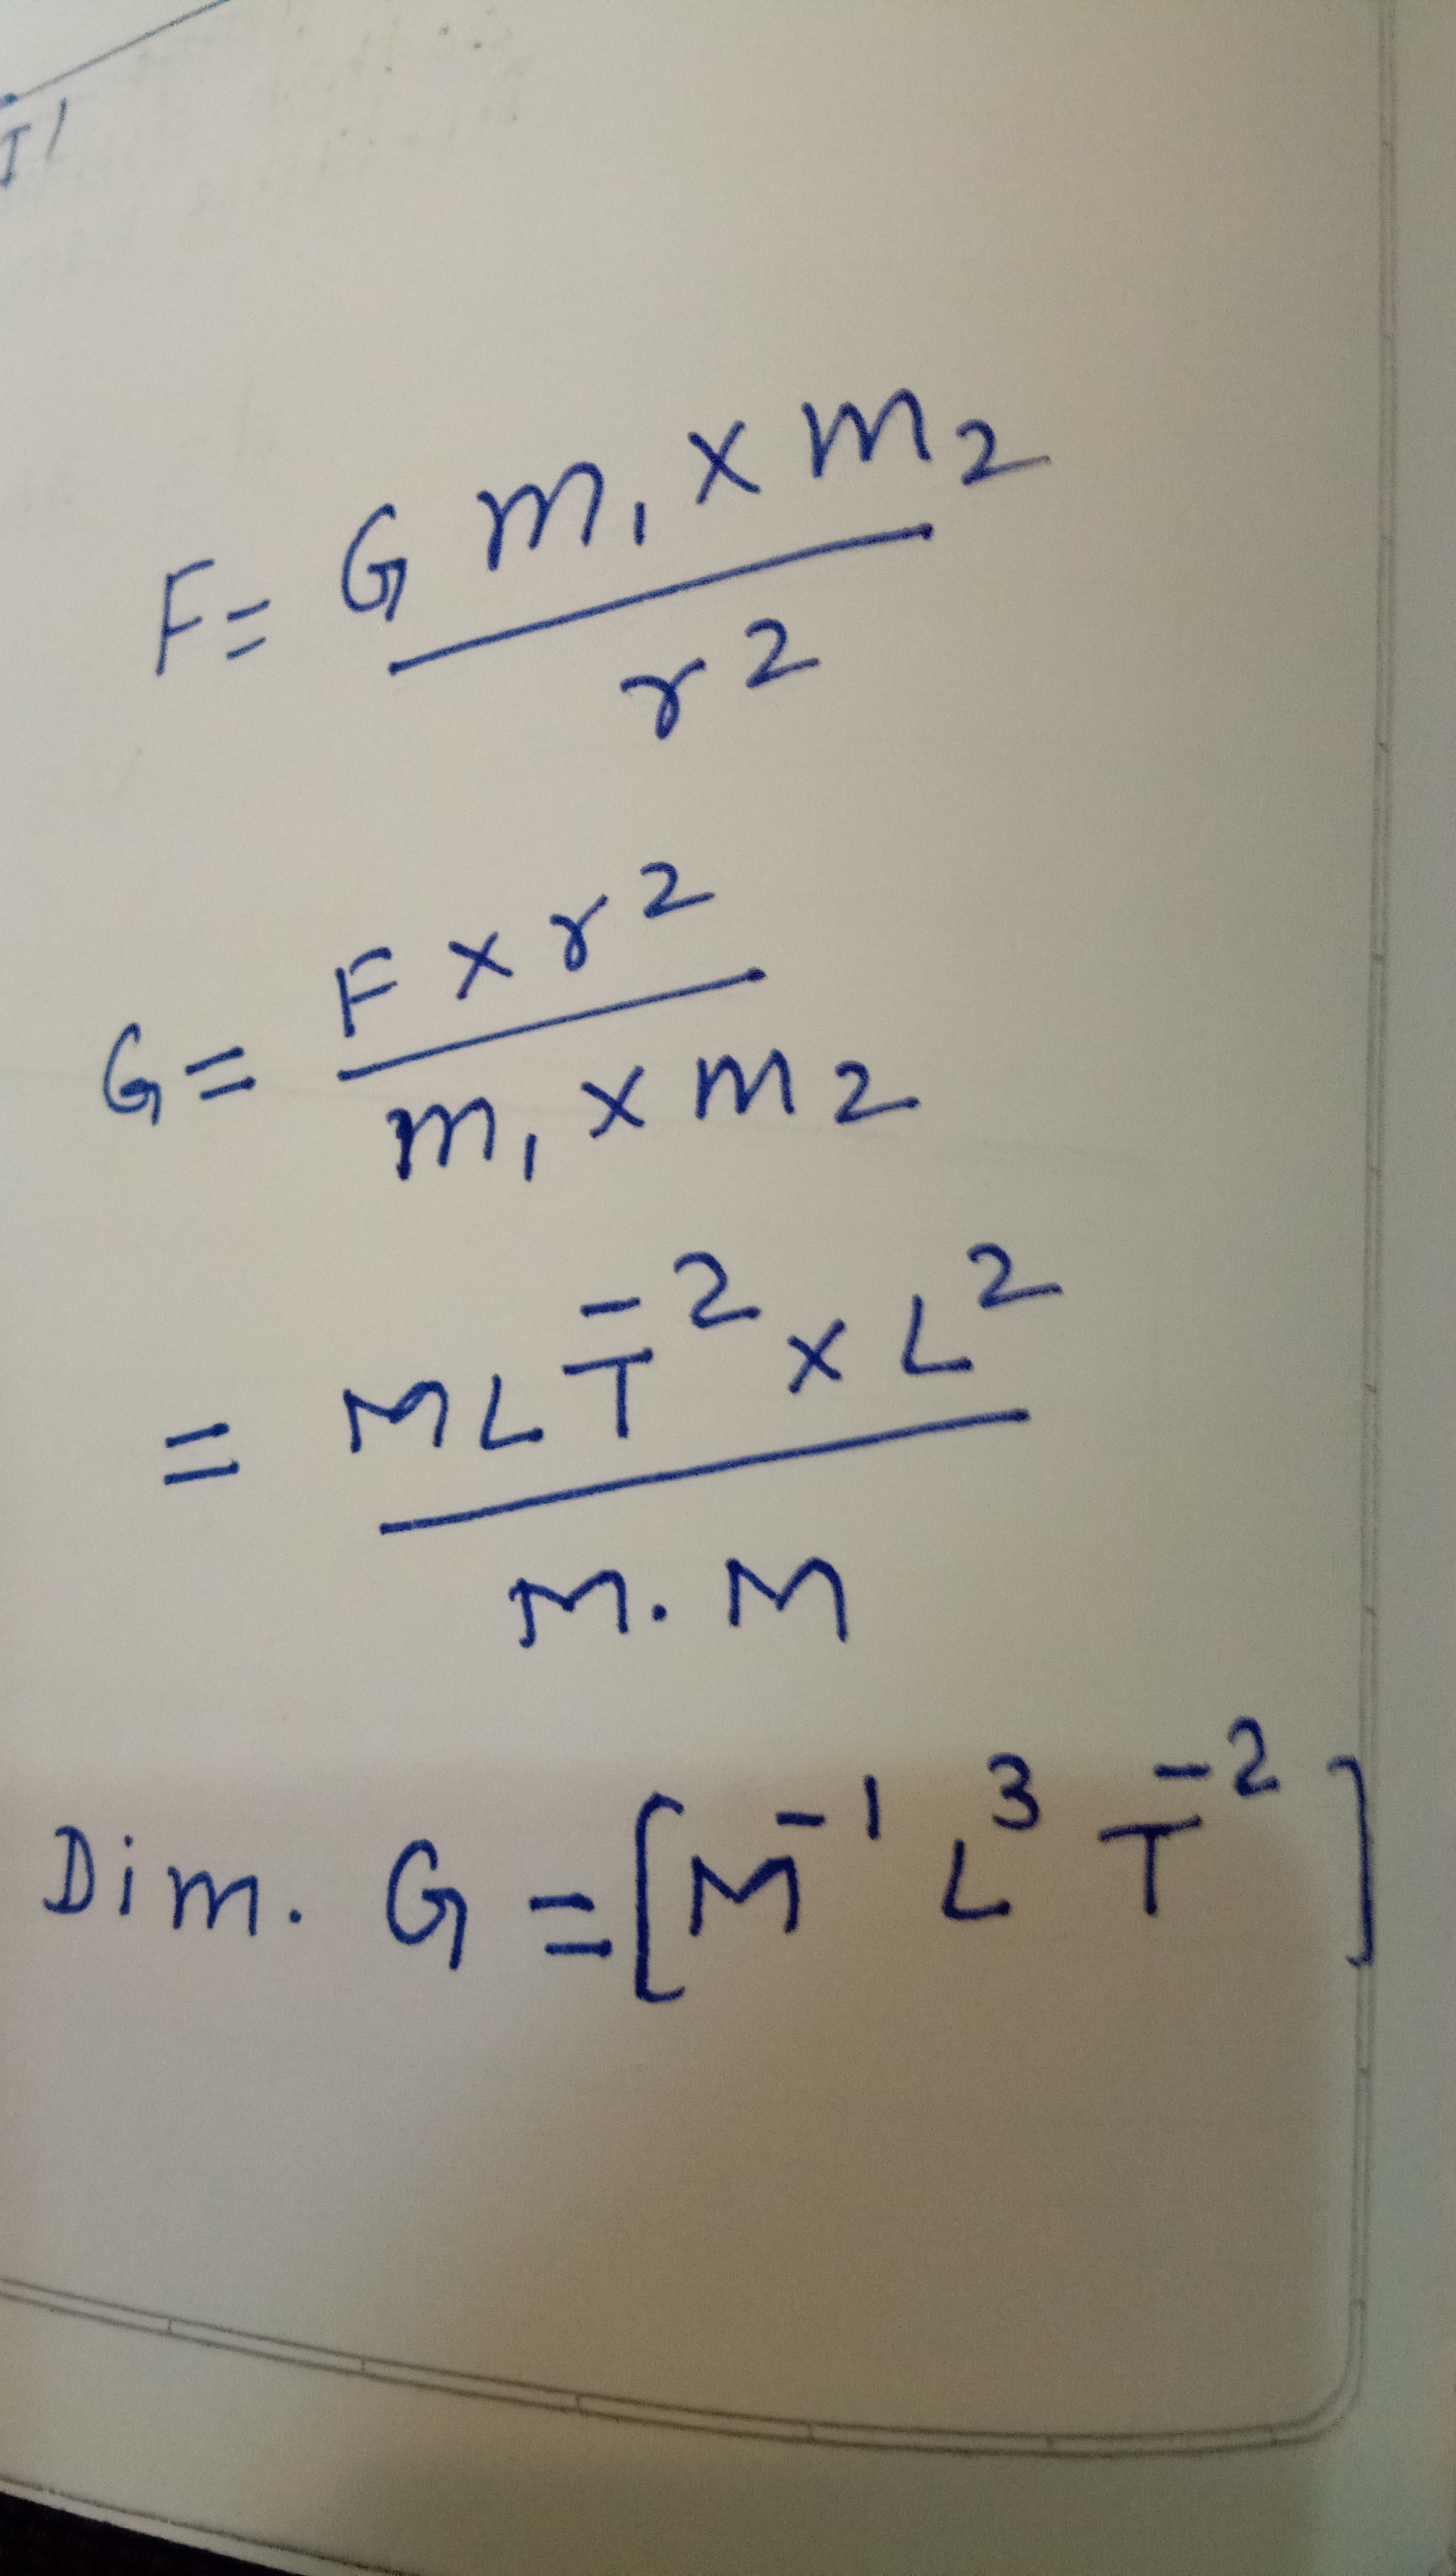 I'
F = G m₁ × m₂ / r²
G = F × r² / m₁ × m₂
= M L T⁻² × L² / M . M
Dim. G = [M⁻¹ L³ T⁻²]